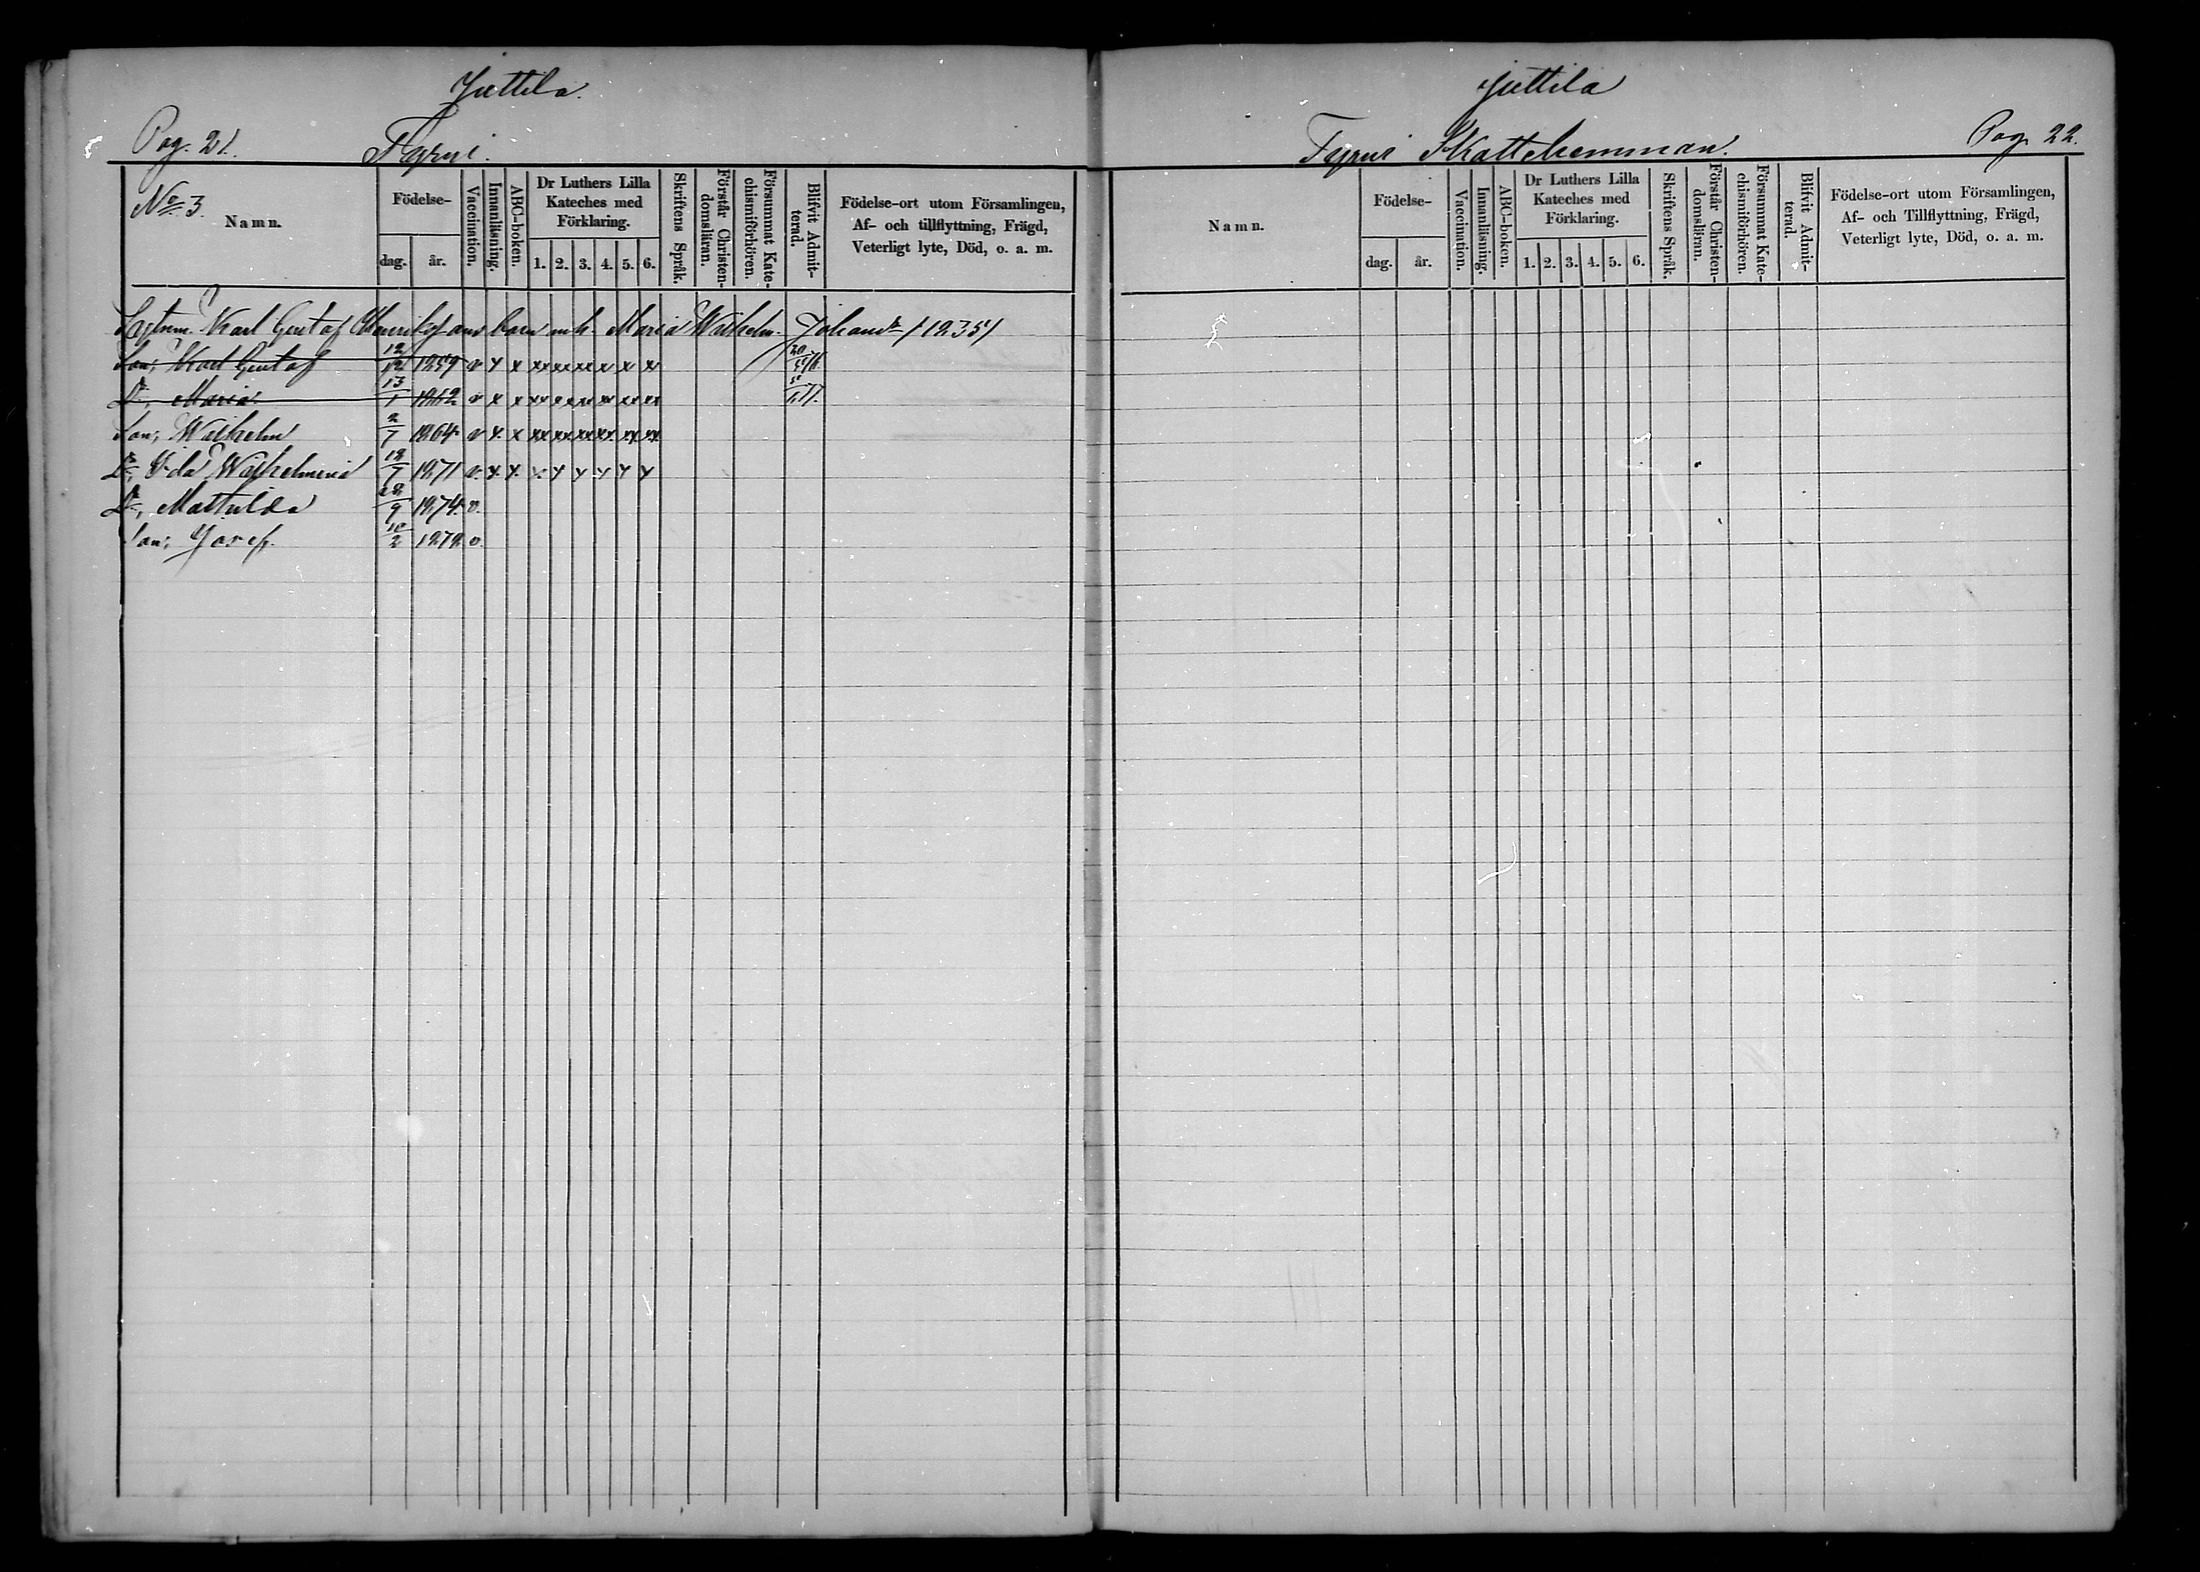 Juttila.
Pag. 21. Tyrni.
No 3.
Namn.
Födelse-
dag. år.
Vaccination.
Innanläsning.
ABC-boken.
Dr Luthers Lilla Kateches med Förklaring.
1. 2. 3. 4. 5. 6.
Skriftens Språk.
Förstår Christendomsläran.
Försummat Katechismiförhören.
Blifvit Admitterad.
Födelse-ort utom Församlingen, Af- och tillflyttning, Frägd, Veterligt lyte, Död, o. a. m.
Karl Gustaf Henrikss ans barn m h. Maria Wilhelm. Johansdr / 1835/
Son, Karl Gustaf 12/12 1859 v x x xx xx xx x x x
Dr, Maria 13/1 1862 v x x xx x xx xx xx xx
Son, Wilhelm 2/7 1864 v x x xx xx xx xx xx xx
Dr, Ida Wilhelmina 12/7 1871 v. x x x x x x x x
Dr, Mathilda 28/9 1874 v.
Son, Josef. 10/2 1878 v.
Juttila
Tyrni Skattehemman. Pag. 22.
Namn.
Födelse-
dag. år.
Vaccination.
Innanläsning.
ABC-boken.
Dr Luthers Lilla Kateches med Förklaring.
1. 2. 3. 4. 5. 6.
Skriftens Språk.
Förstår Christendomsläran.
Försummat Katechismiförhören.
Blifvit Admitterad.
Födelse-ort utom Församlingen, Af- och Tillflyttning, Frägd, Veterligt lyte, Död, o. a. m.